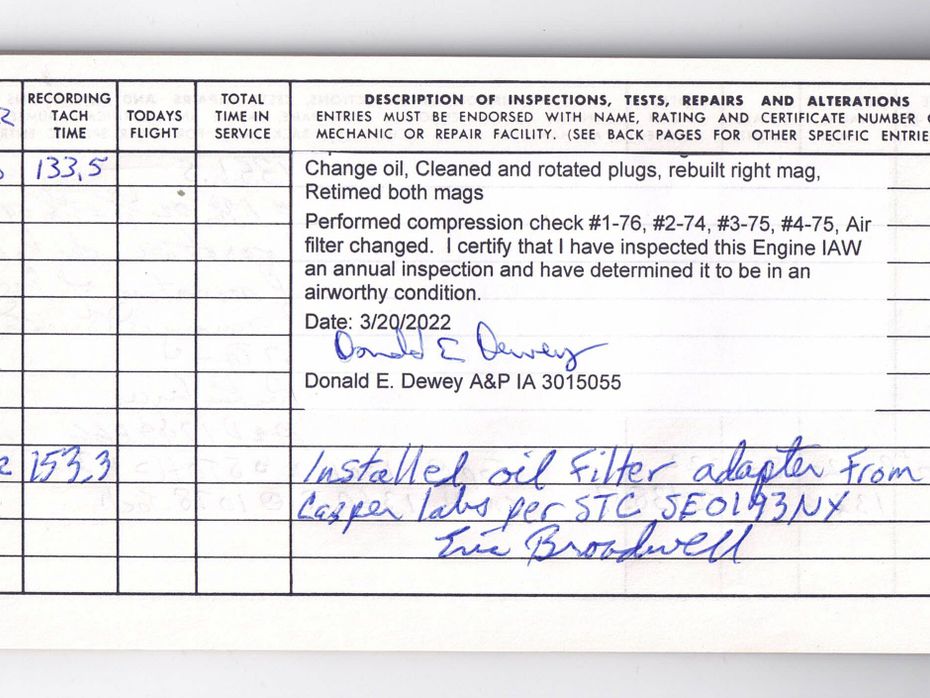 RECORDING TACH TIME
TODAYS FLIGHT
TOTAL TIME IN SERVICE
DESCRIPTION OF INSPECTIONS, TESTS, REPAIRS AND ALTERATIONS
ENTRIES MUST BE ENDORSED WITH NAME, RATING AND CERTIFICATE NUMBER
MECHANIC OR REPAIR FACILITY. (SEE BACK PAGES FOR OTHER SPECIFIC ENTRIE
133.5
Change oil, Cleaned and rotated plugs, rebuilt right mag,
Retimed both mags
Performed compression check #1-76, #2-74, #3-75, #4-75, Air
filter changed. I certify that I have inspected this Engine IAW
an annual inspection and have determined it to be in an
airworthy condition.
Date: 3/20/2022
Donald E Dewey
Donald E. Dewey A&P IA 3015055
153.3
Installed oil filter adapter from
Casper labs per STC SE0193NY
Eric Broadwell